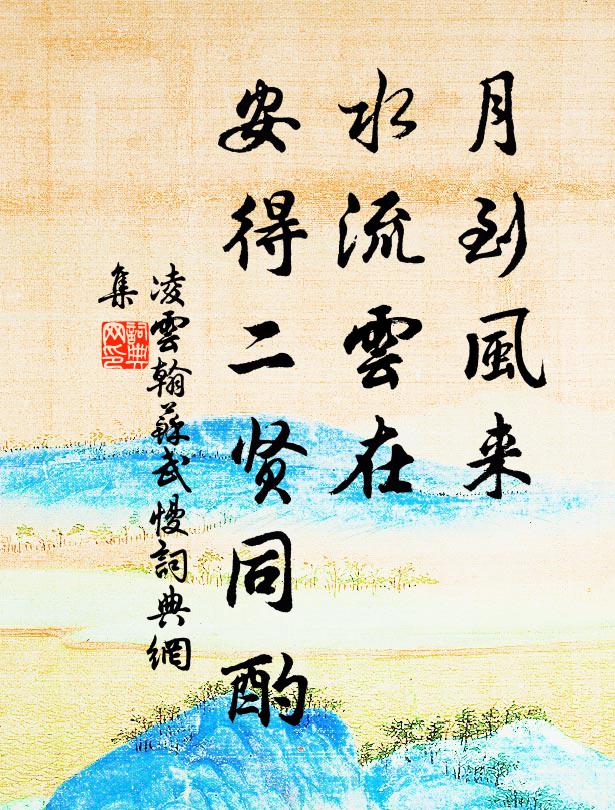 月到風来
水流雲在
安得二贤同酌
凌雲翰蘇武慢詞典網
集
詞典
网印